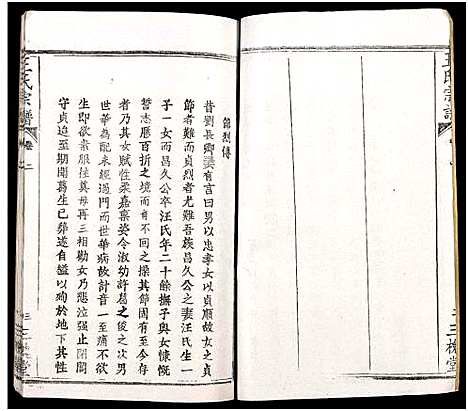 節烈傳
昔劉長卿妻有言曰男以忠孝女以貞順然女之貞
節者難而貞烈者尤難吾族昌久公之妻汪氏生一
子一女而昌久公卒汪氏年二十餘撫子與女慷慨
誓志歷百折之境而有不回之操其節固有至今存
者乃其女賦性柔嘉稟姿令淑幼許葛之俊之次男
世華為配未經過門而世華病故訃音一至痛不欲
生即欲奔服往奠母再三相勸女乃悲泣強止閉閨
守貞迨至期聞葛生已葬遂自縊以殉於地下其性
王氏宗譜
卷二
三槐堂
王氏宗譜
三槐堂